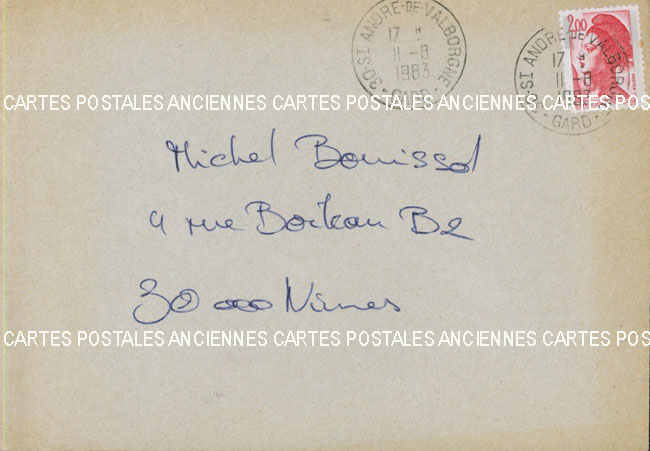 30-ST ANDRE-DE-VALBORGNE
17 H
11-8
1983
- GARD -
30-ST ANDRE-DE-VALBORGNE
17 H
11-8
1983
- GARD -
2,00
CARTES POSTALES ANCIENNES CARTES POSTALES ANCIENNES CARTES POSTALES
Michel Bouissol
4 rue B2
30 000 Nimes
CARTES POSTALES ANCIENNES CARTES POSTALES ANCIENNES CARTES POSTALES